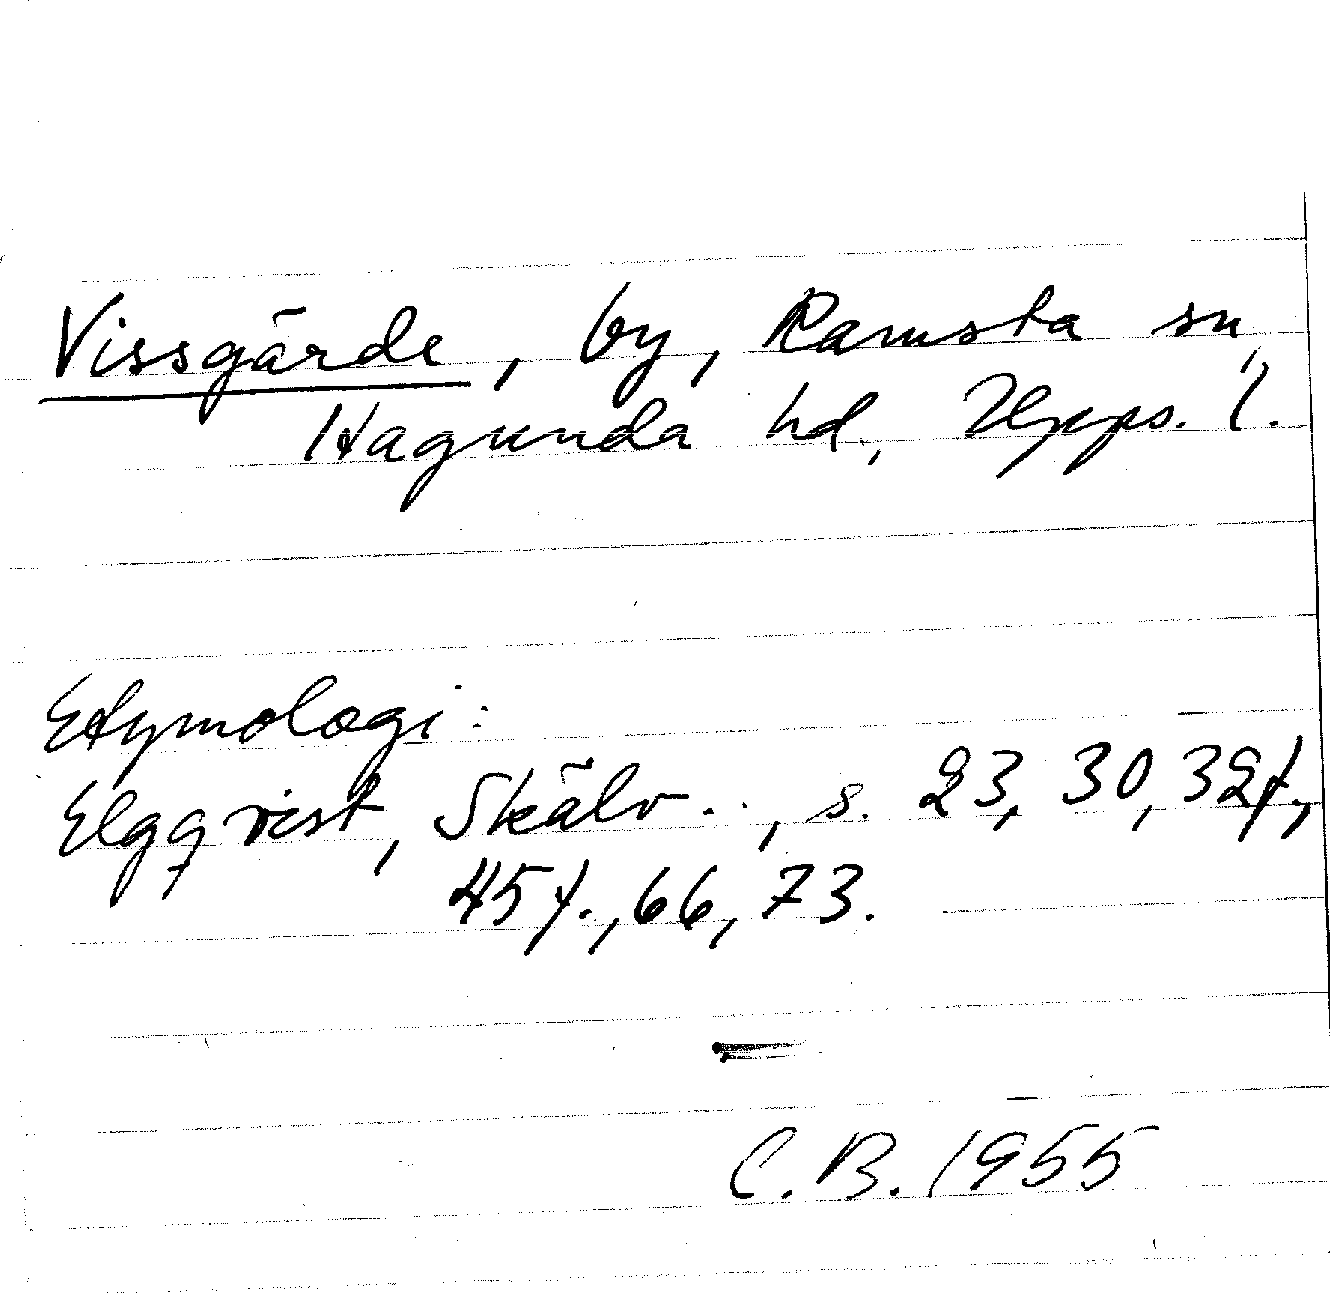 Vissgärde, by, Ramsta sn,
Hagunda hd, Upps. l.
Etymologi:
Elgqvist, Skälv.., s. 23, 30, 32f.,
45f., 66, 73.
C.B. 1955